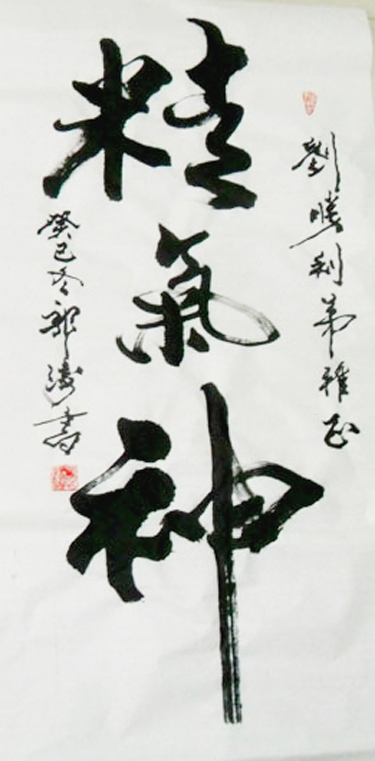 劉勝利弟雅正
精氣神
癸巳冬郭濤書